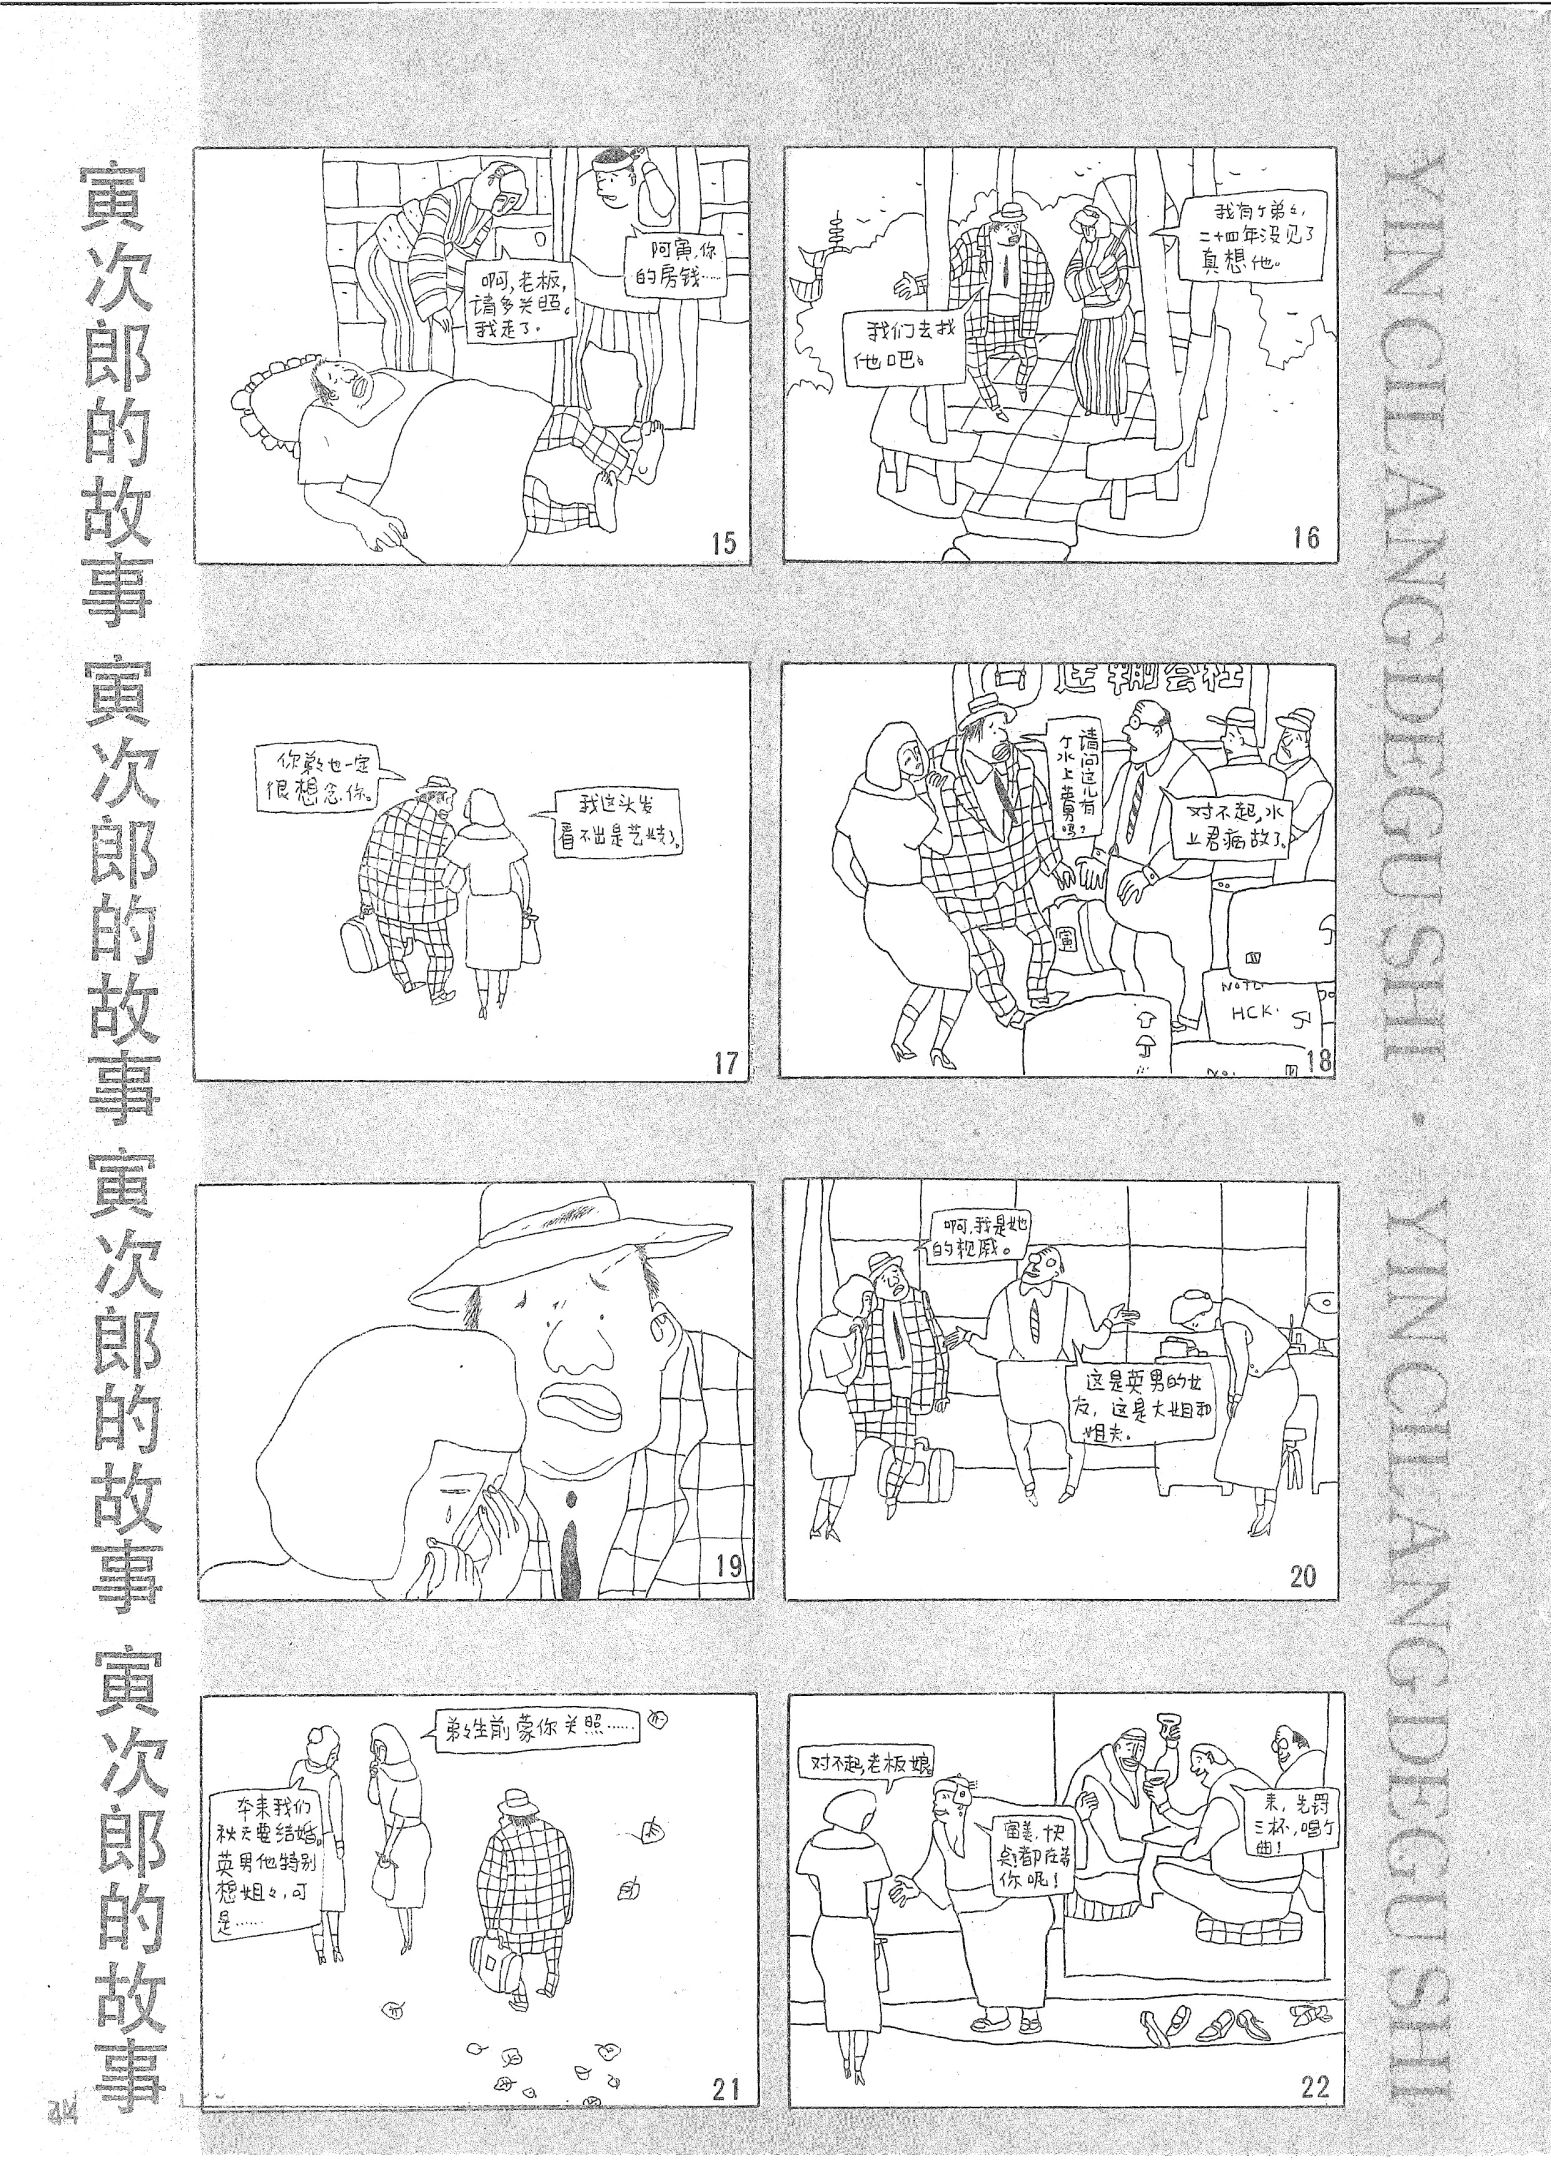 寅次郎的故事 寅次郎的故事 寅次郎的故事 寅次郎的故事
阿寅,你
的房钱……
啊,老板,
请多关照。
我走了.
15
我有个弟々,
二十四年没见了
真想他。
我们去找
他吧。
16
你弟々也一定
很想念你。
我这头发
看不出是艺妓了。
17
运输会社
请问这儿有
个水上英男吗?
对不起,水
上君病故了。
寅
NOTL.
HCK.
No.
18
19
啊,我是她
的亲戚。
这是英男的女
友, 这是大姐和
姐夫.
20
弟々生前蒙你关照……
本来我们
秋天要结婚。
英男他特别
想姐々,可
是……
21
对不起,老板娘
快
点!都在等
你呢!
来,先罚
三杯,唱个
曲!
22
YINCILANGDEGUSHI · YINCILANGDEGUSHI